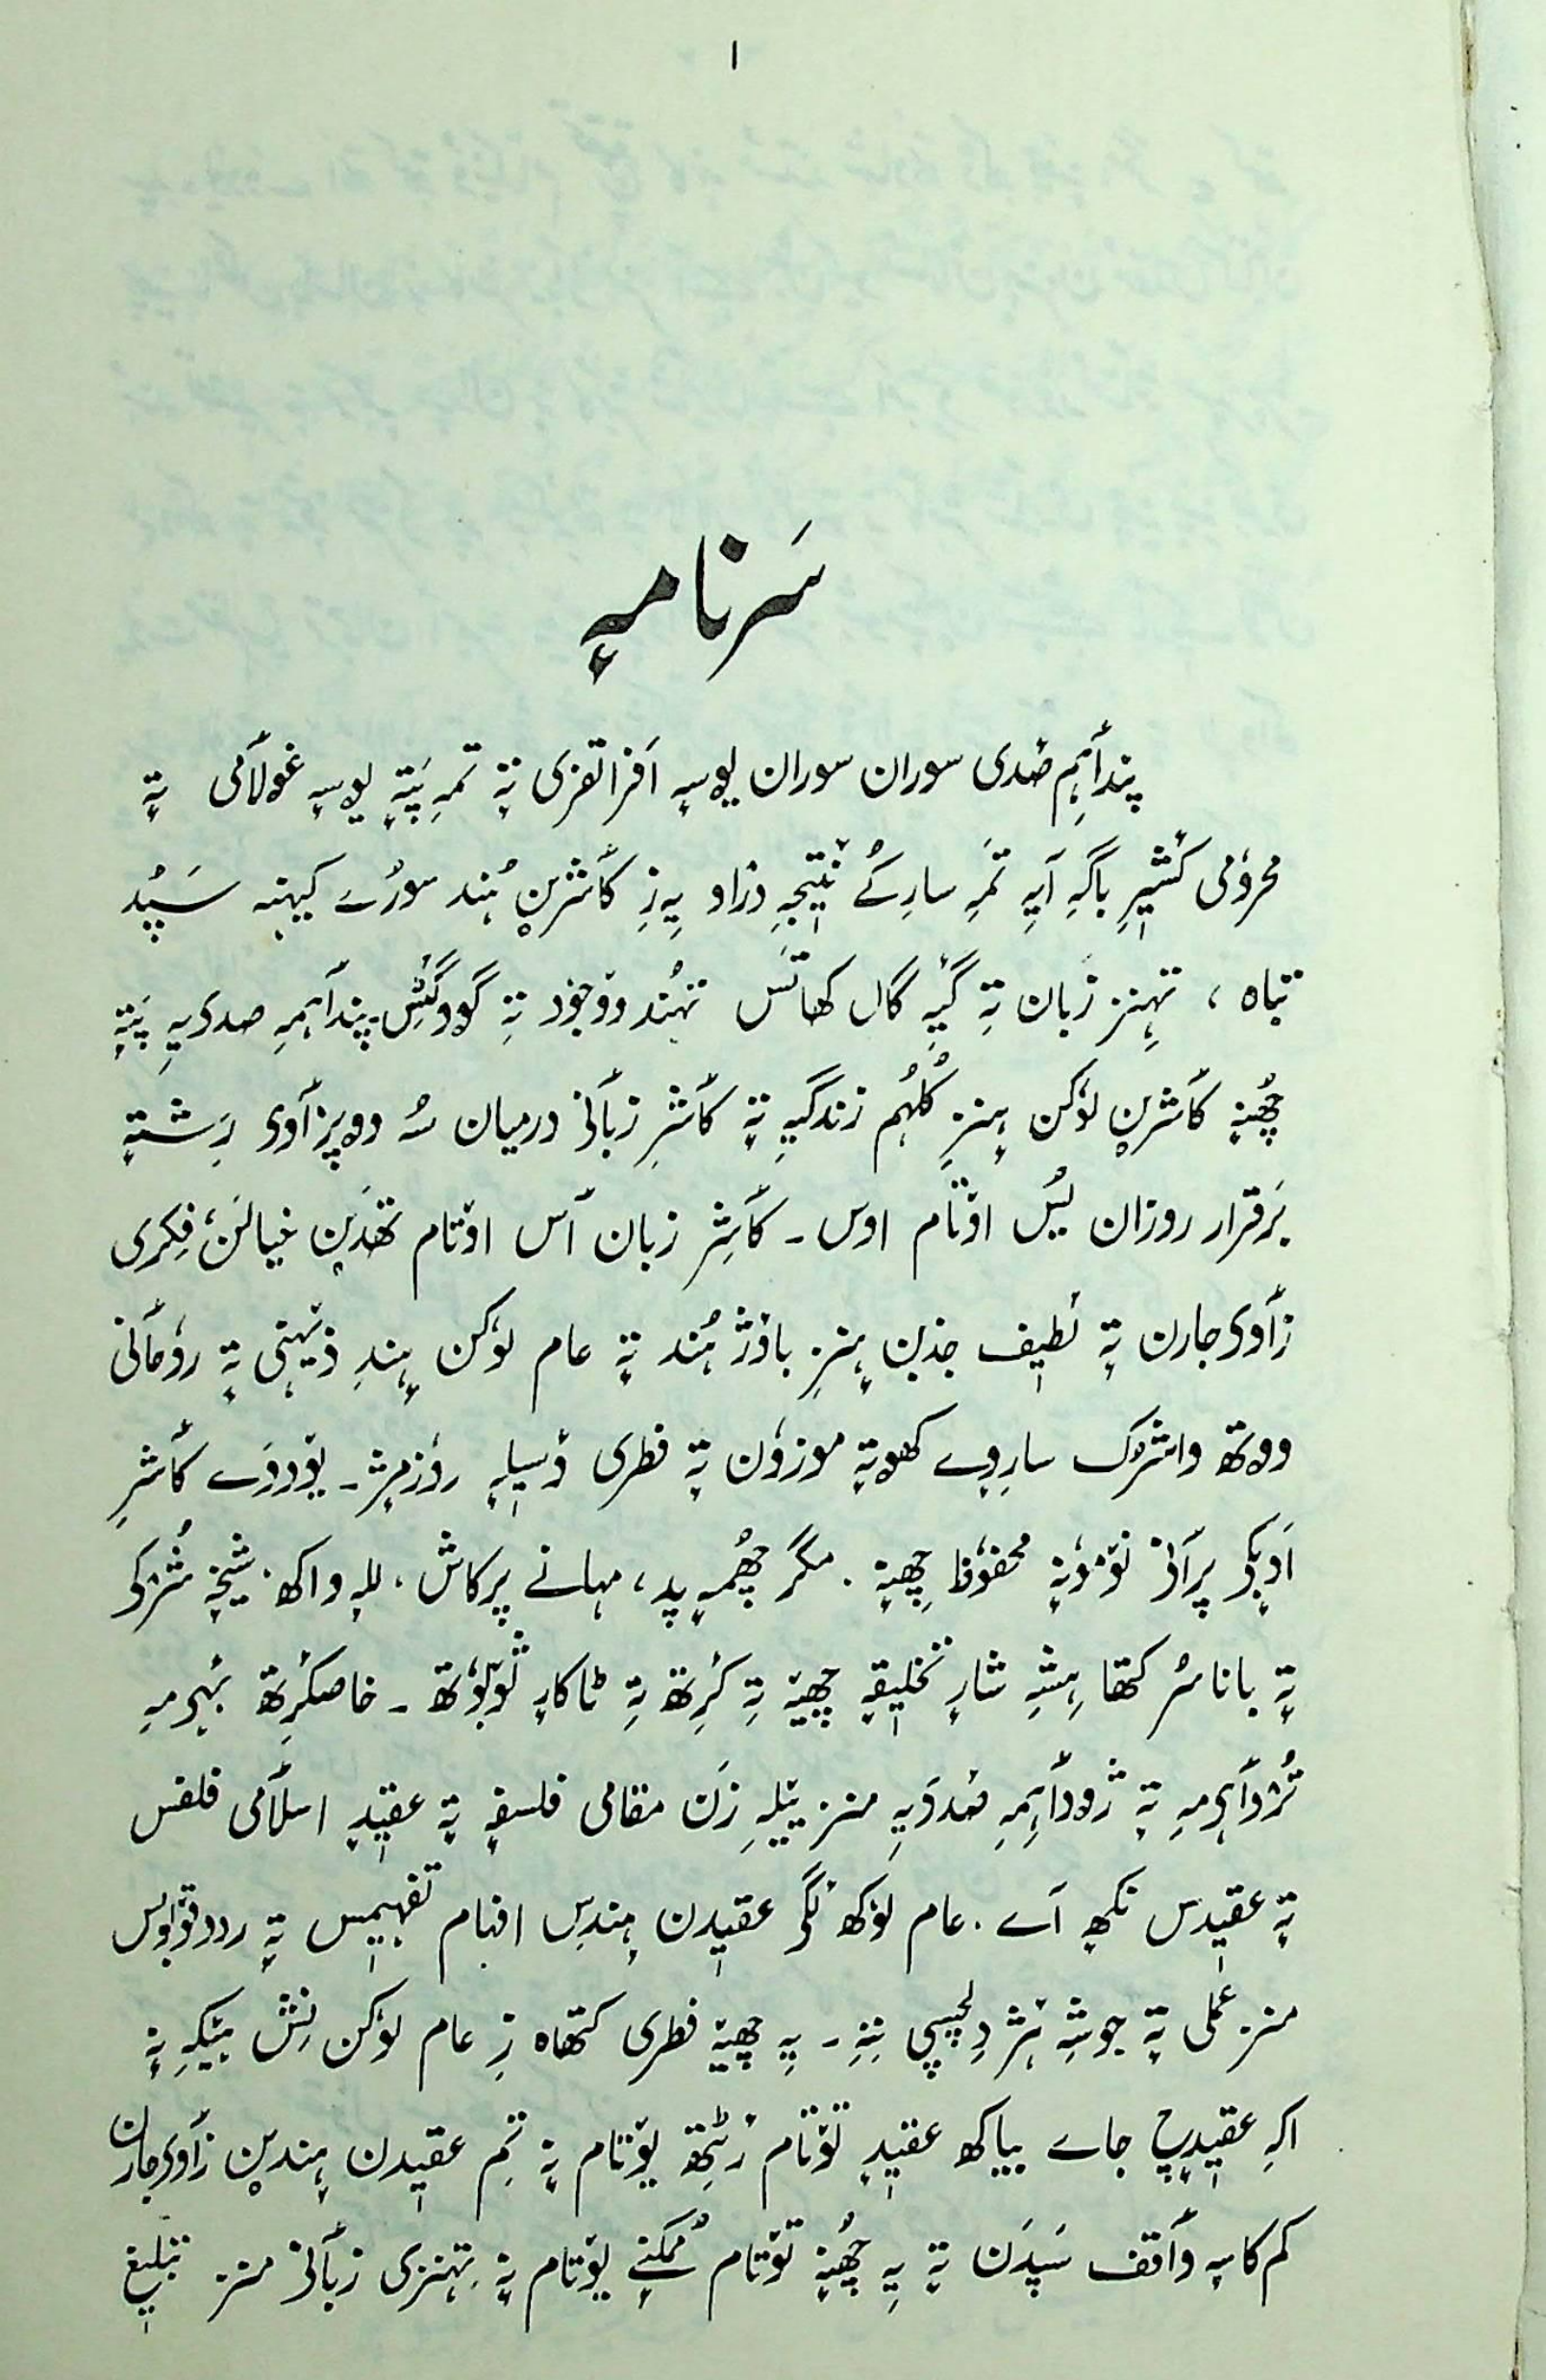 ۱
سَرنامہٕ
پندٲہِم صٔدی سوران سوران یوسہٕ اَفراتفری تہٕ تمہِ پَتہٕ یوسہٕ غولٲمی تہٕ
محروٗمی کٔشیٖرِ باگہِ آیہِ تَمہِ سارِکُے نٔتیٖجہِ دراو یہِ زِ کٲشرین ہُند سورُے کیہنہہ سَپُد
تباہ ، تہنٛز زبان تہِ گٔیہِ گال کھاتَس تہُند ووجوٗد تہِ گوو گٔشِ۔ پندٲہمہِ صدی یہِ پَتہٕ
چھُنہٕ کٲشرین لوٗکن ہنٛزِ کُلہُم زندگیہِ تہٕ کٲشرِ زبٲنی درمیان سُہ دوٚپرٛٲوی رِشتہٕ
بَرقرار روزان یُس اوٚتام اوس ۔ کٲشِر زبان ٲس اوٚتام تھَدٮ۪ن خیالَن، فِکری
زٲوی جارن تہٕ لٔطیٖف جذبن ہنٛزِ باوٚژ ہُند تہٕ عام لوٗکن ہِندِ ذٔہنی تہٕ روٗحٲنی
ووتھ واشرُک سارِوٕے کھوتہٕ موزوٗن تہٕ فطری ؤسیٖلہٕ روٗزمٕژ ۔ یوٚدوَے کٲشرِ
اَدبٕکۍ پرٲنۍ نوٚموٗنہٕ محفوٗظ چھِنہٕ ۔ مگر چھُمہٕ پد، مہانے پرکاش، للہٕ واکھ، شیٖخہٕ شرُٛکۍ
تہٕ باناسُر کتھا ہِشہِ شارٕ تخلیٖقہٕ چھِنہٕ تہِ کٔرِتھ تہِ ٹاکارٕ ثوٚبوٗتھ ۔ خاصکٔرِتھ بٔہِمہِ
تُرٛوٲہِمہِ تہٕ ژوٚدٲہِمہِ صٔدی یہِ منٛز ییٚلہِ زَن مقامی فلسفہٕ تہٕ عقیٖدٕ اسلٲمی فلسفس
تہٕ عقیٖدس نکھٕ آے ۔ عام لوٗکھ لٔگۍ عقیٖدن ہندِس افہام تفہیٖمس تہٕ رد و قبوٗلس
منٛز عملی تہٕ جوشہٕ ۂژ دِلچسپی نِنہِ ۔ یہِ چھِنہٕ فطری کتھاہ زِ عام لوٗکن نِش ہیٚکہِ نہٕ
اکہِ عقیٖدٕچ جاے بیاکھ عقیٖدٕ توٚتام رٔٹِتھ یوٚتام نہٕ تِم عقیٖدن ہندٮ۪ن زٲوی جارن
کم کاسہٕ وٲقف سَپدَن تہٕ یہِ چھُنہٕ توٚتام مُمکنٕے یوٚتام نہٕ تِہنٛزی زبٲنۍ منٛز تبلیٖغ